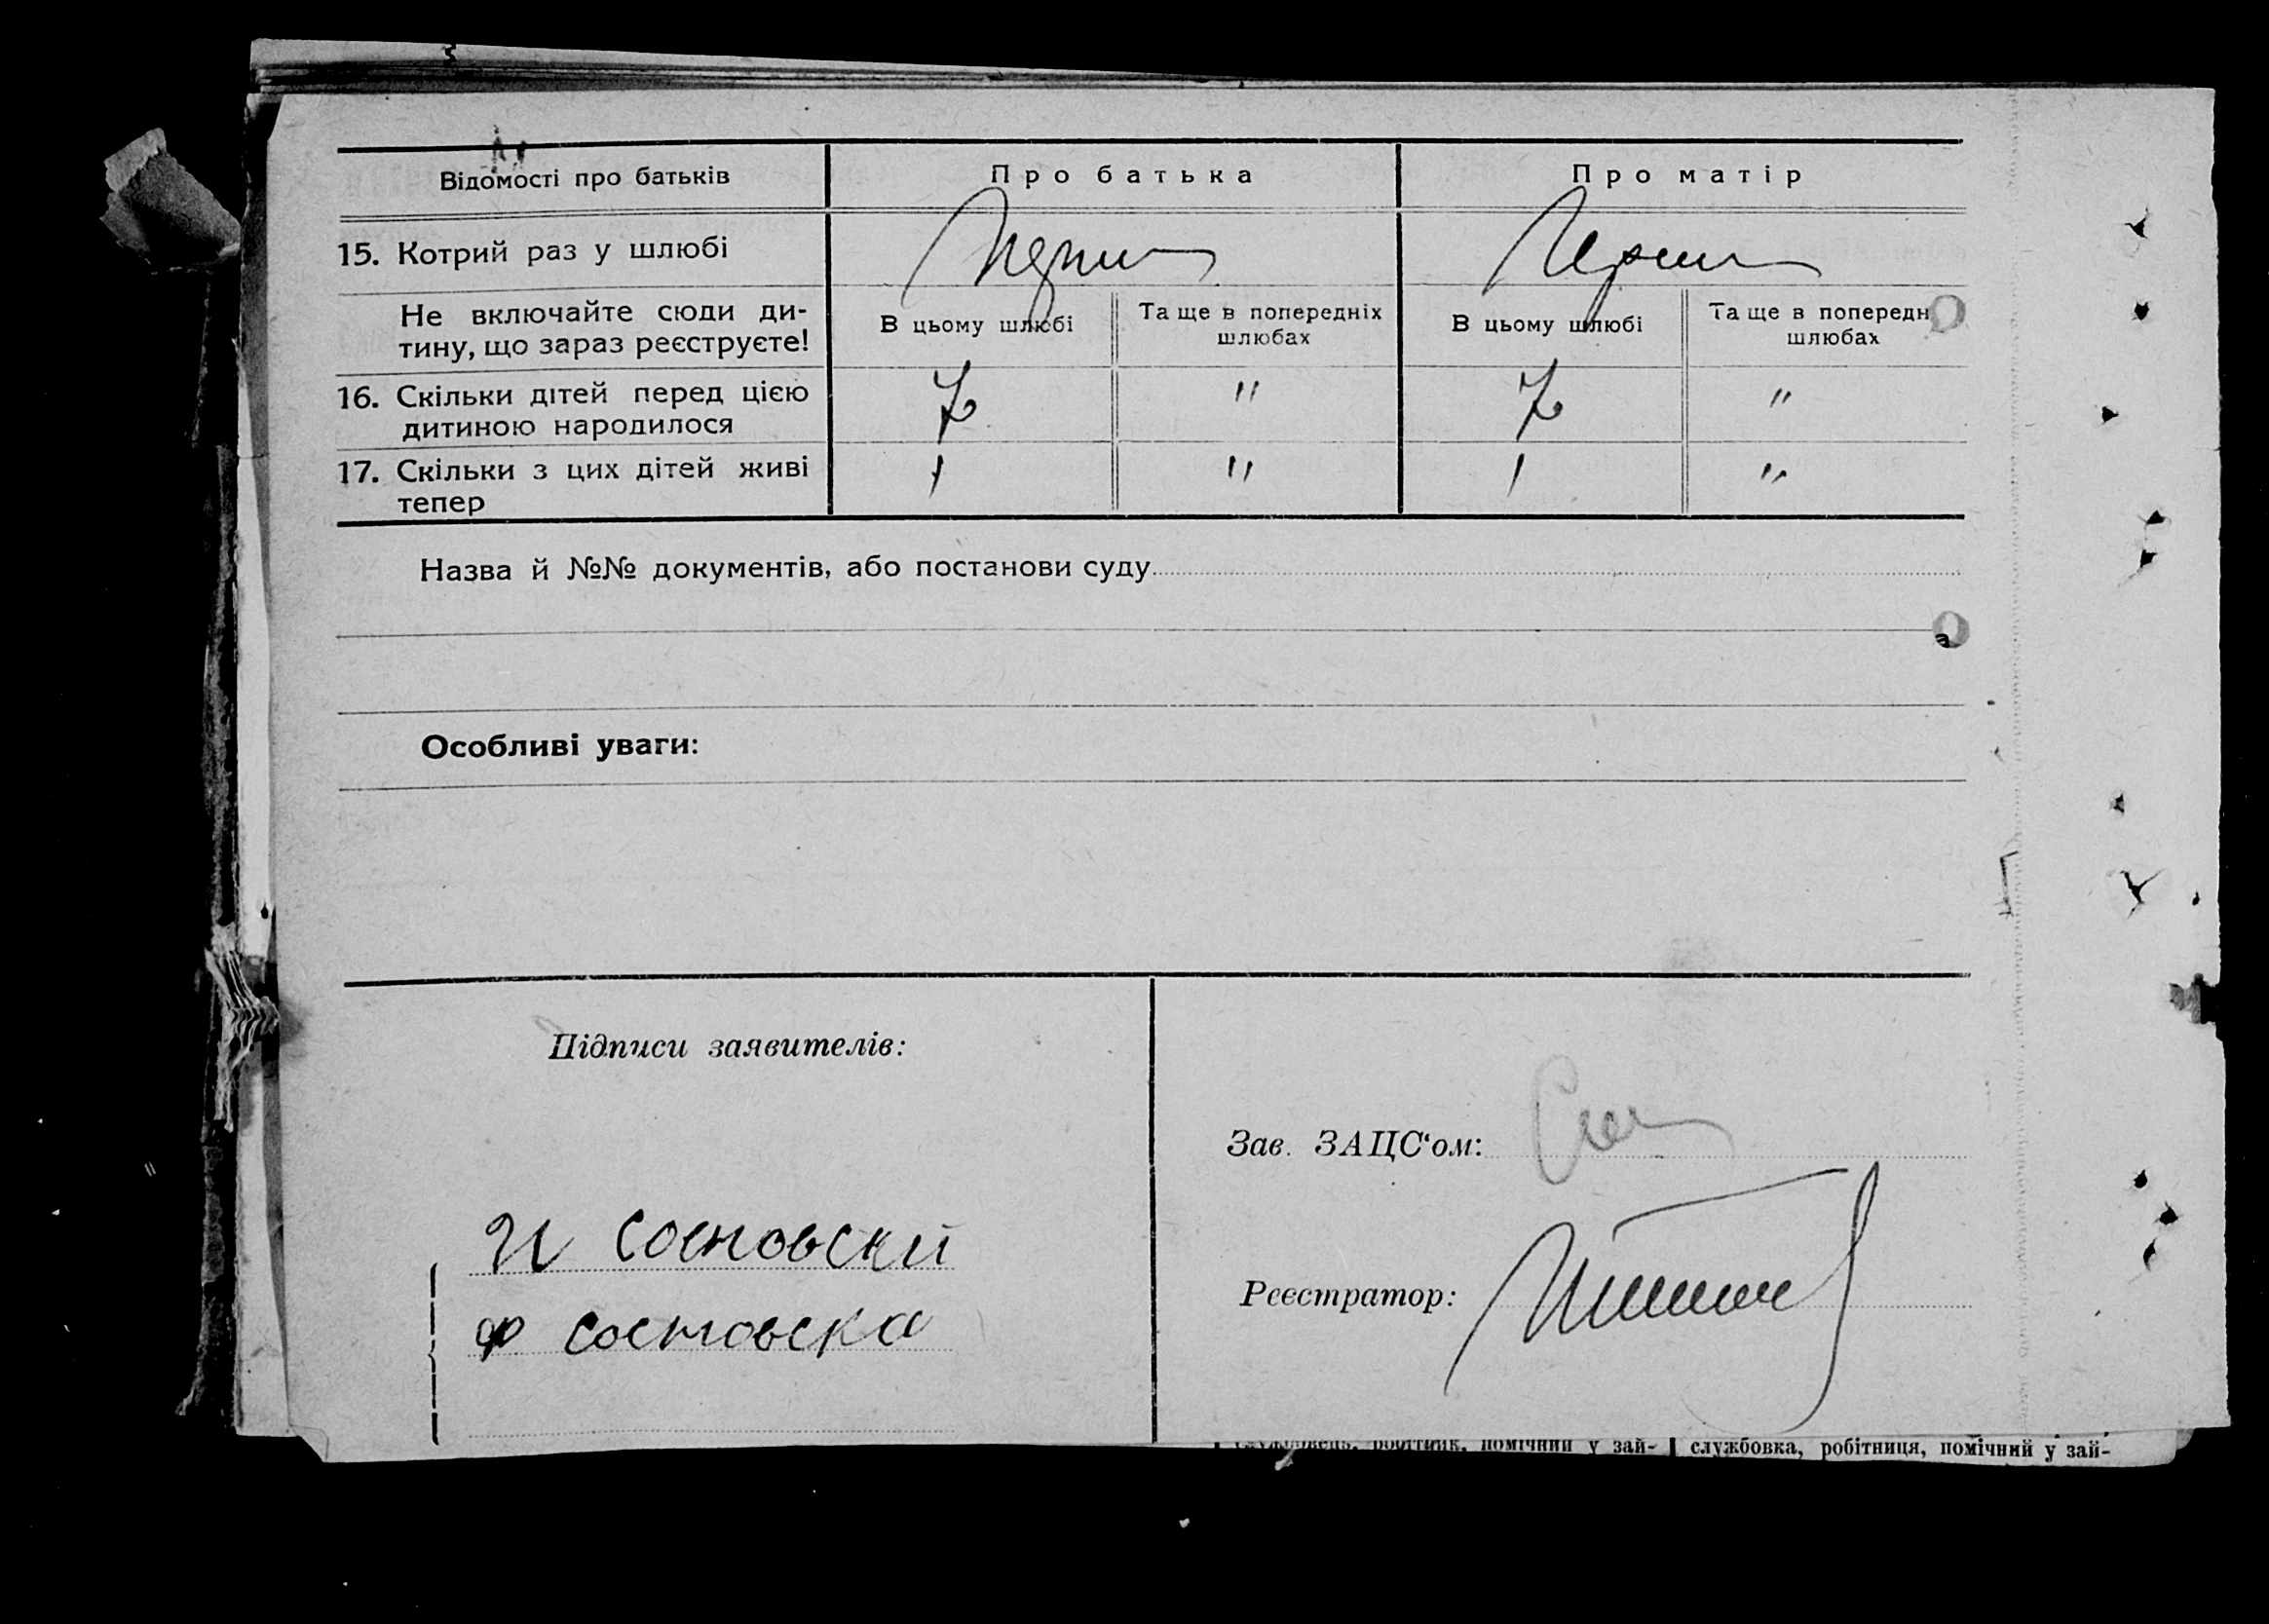 Відомості про батьків
Про батька
Про матір
15. Котрий раз у шлюбі
Не включайте сюди ди-
тину, що зараз реєструєте!
В цьому шлюбі
Та ще в попередніх
шлюбах
В цьому шлюбі
Та ще в попередн
шлюбах
16. Скільки дітей перед цією
дитиною народилося
"
"
17. Скільки з цих дітей живі
тепер
1
"
1
"
Назва й №№ документів, або постанови суду
Особливі уваги:
Підписи заявителів:
И Сосновский
Ф Сосновска
Зав. ЗАЦС‘ом:
Реєстратор:
службовка, робітниця, помічний у зай-